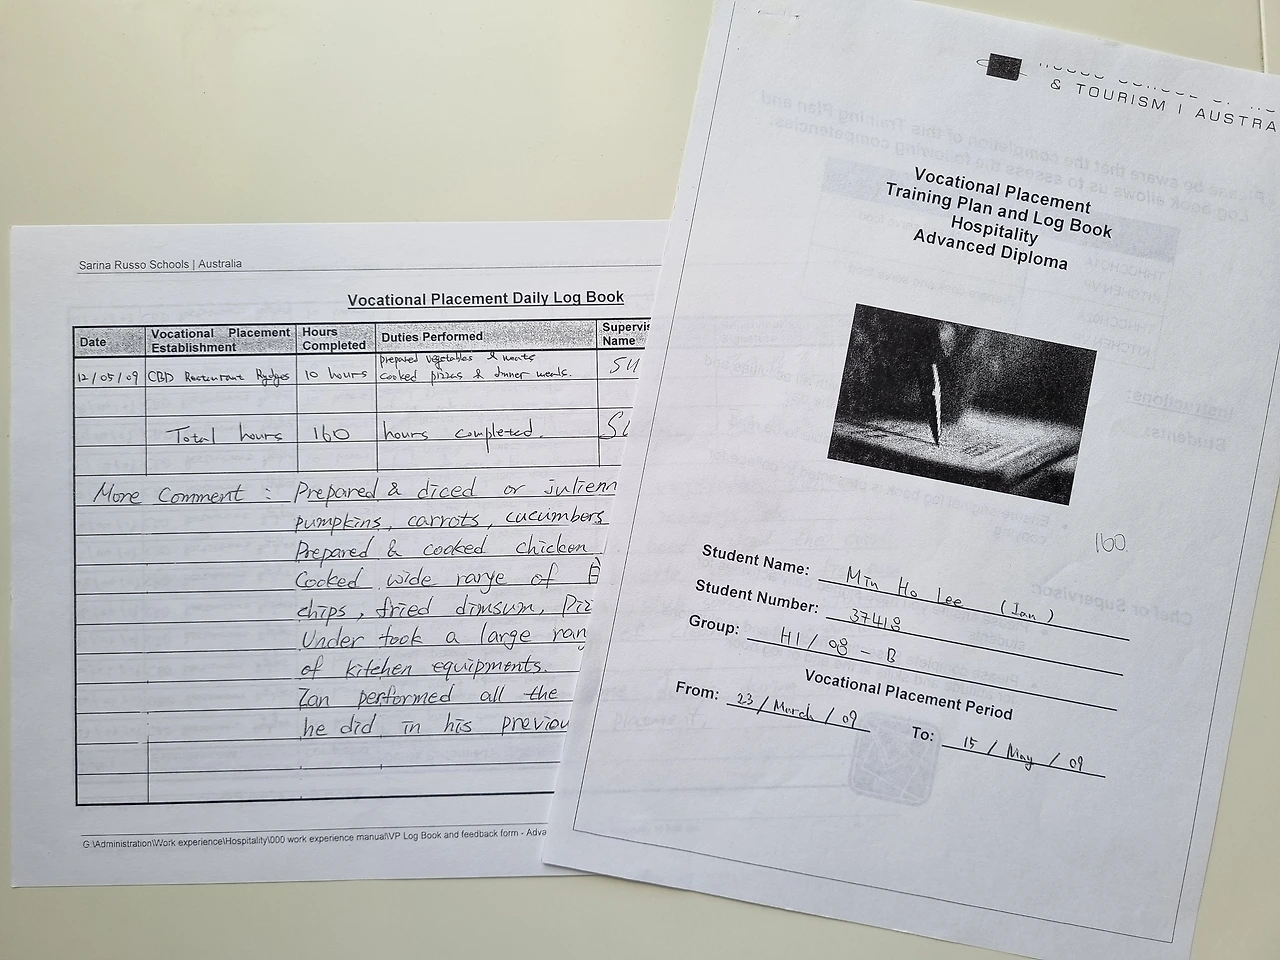 Sarina Russo Schools | Australia
Vocational Placement Daily Log Book
Date
Vocational Placement Establishment
Hours Completed
Duties Performed
Name
12/05/09
CBD Restaurant Rydges
10 hours
prepared vegetables & meats
cooked pizzas & dinner meals.
Total hours 160 hours completed.
More Comment : Prepared & diced or julienn
pumpkins, carrots, cucumbers
Prepared & cooked chicken
Cooked wide range of
chips, fried dimsum, Piz
Under took a large ran
of kitchen equipments.
Ian performed all the
he did in his previou
G:\Administration\Work experience\Hospitality\000 work experience manual\VP Log Book and feedback form - Adva
& TOURISM | AUSTRA
Vocational Placement
Training Plan and Log Book
Hospitality
Advanced Diploma
160.
Student Name: Min Ho Lee (Ian)
Student Number: 37418
Group: H1 / 08 - B
Vocational Placement Period
From: 23 / March / 09 To: 15 / May / 09